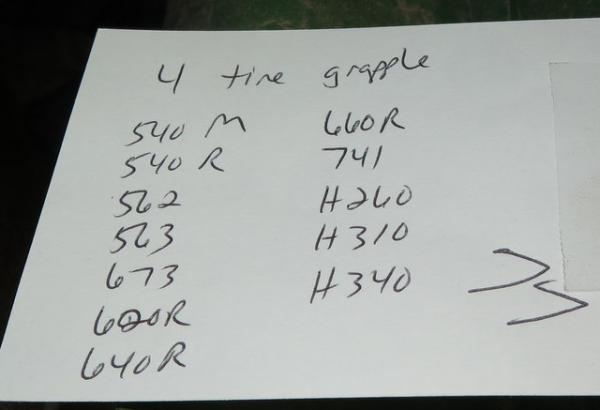 4 tine grapple
540 M
540 R
562
563
673
620R
640R
660R
741
H260
H310
H340